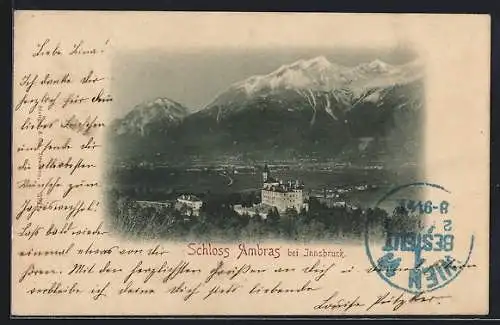 Liebe Lina!
Ich danke der
herzlich für dein
liebes Kärtchen
und sende dir
die allerbesten
Wünsche zum
Jahreswechsel!
Lass bald wieder
einmal etwas von der
hören. Mit den herzlichsten Grüßen an dich u
verbleibe ich deine dich liebende
Louise
Schloss Ambras bei Innsbruck.
WIEN
BESTELLT
2
8-9V